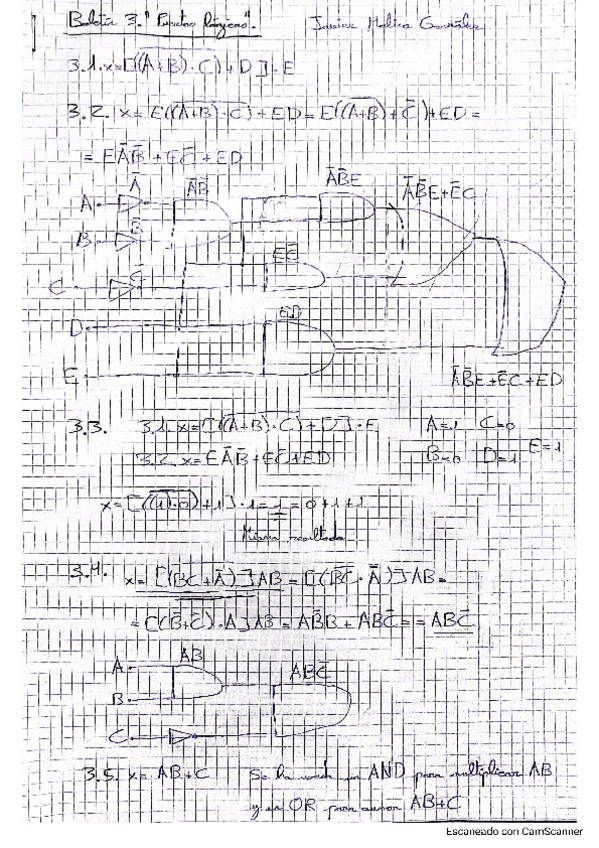 Boletín 3. "Puertas Lógicas". Javier Molina González
3.1. x=[(\overline{(A+B)·C})+D]·E
3.2. x=E(\overline{(A+B)·C})+ED=E((\overline{A+B})+C̄)+ED=
=EĀB̄+EC̄+ED
Ā ĀB̄ ĀB̄E ĀB̄E+ĒC
A
B B̄
EC̄
C C̄
D ED
E
ĀB̄E+ĒC+ED
3.3. 3.1. x=[(\overline{(A+B)·C})+D]·E A=1 C=0
3.2. x=EĀB̄+EC̄+ED B=0 D=1 E=1
x=[(\overline{(1)·0})+1]·1=1=0+1+1
Mismo resultado
3.4. x=[(\overline{BC+Ā})]AB=[(\overline{BC}·\overline{Ā})]AB=
=[(B̄+C̄)·A]AB=AB̄B+ABC̄==ABC̄
A AB ABC̄
B
C
3.5. x=AB+C Se ha usado un AND para multiplicar AB
y un OR para sumar AB+C
Escaneado con CamScanner